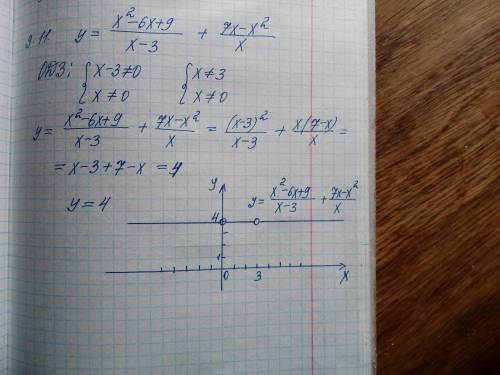 9.11. y = (x²-6x+9)/(x-3) + (7x-x²)/x
ОДЗ: { x-3≠0 { x≠3
{ x≠0 { x≠0
y = (x²-6x+9)/(x-3) + (7x-x²)/x = (x-3)²/(x-3) + x(7-x)/x =
= x-3+7-x = 4
y = 4
y
y = (x²-6x+9)/(x-3) + (7x-x²)/x
4
1
0 3 x